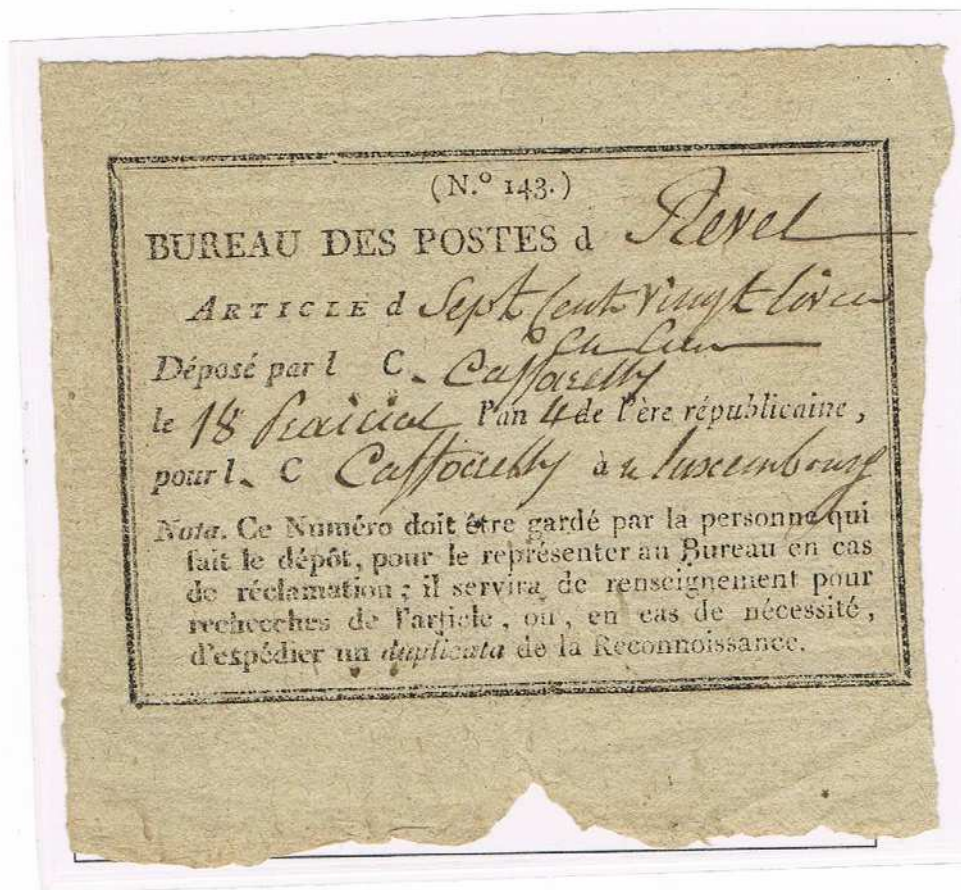 (N.º 143.)
BUREAU DES POSTES d Revel
ARTICLE d Sept Cent vingt livres
Déposé par l C. Caffarelly
le 18 prairial l'an 4 de l'ère républicaine,
pour l. C Caffarelly à luxembourg
Nota. Ce Numéro doit être gardé par la personne qui
fait le dépôt, pour le représenter au Bureau en cas
de réclamation ; il servira de renseignement pour
recherches de l'article, ou, en cas de nécessité,
d'expédier un duplicata de la Reconnoissance.